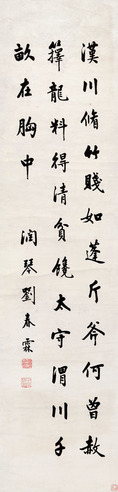 漢川脩竹賤如蓬斤斧何曾赦
籜龍料得清貧饞太守渭川千
畝在胸中
潤琴劉春霖